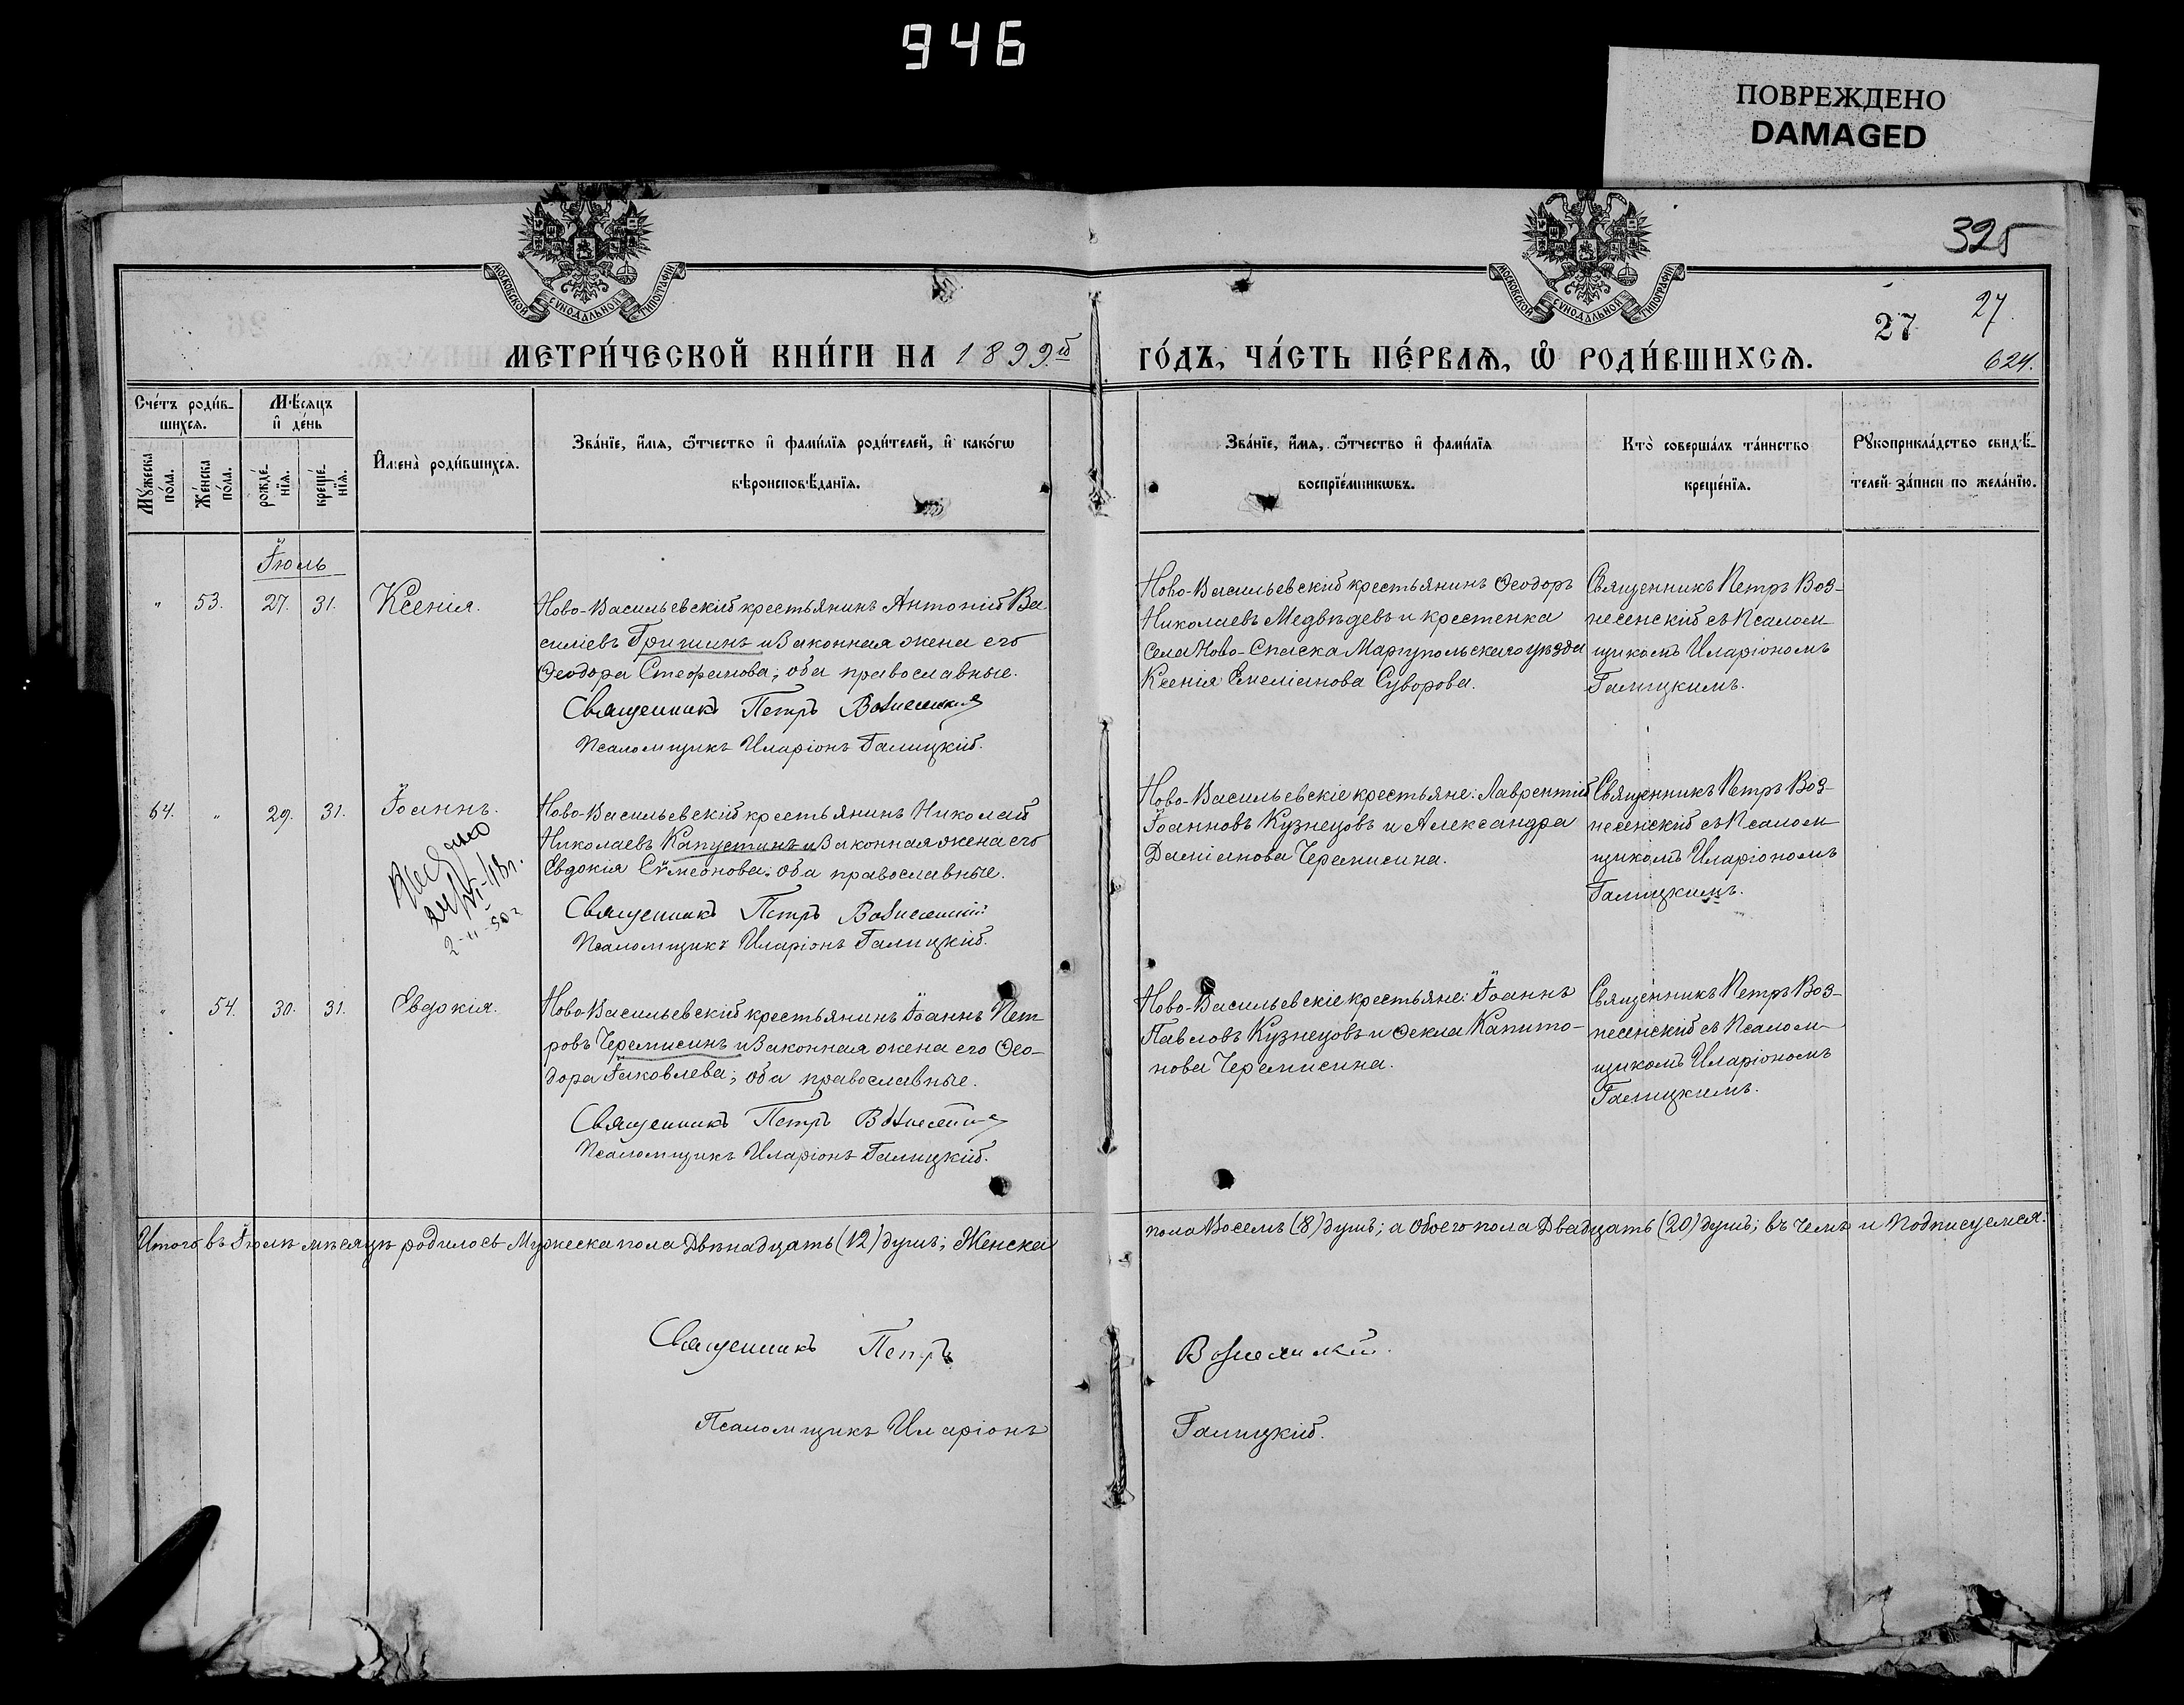 946
ПОВРЕЖДЕНО
DAMAGED
325
МОСКОВСКОЙ СѴНОДАЛЬНОЙ ТИПОГРАФІИ
МОСКОВСКОЙ СѴНОДАЛЬНОЙ ТИПОГРАФІИ
27
27.
624.
МЕТРИ́ЧЕСКОЙ КНИ́ГИ НА 1899.й
ГО́ДЪ, ЧА́СТЬ ПЕ́РВАѦ, Ѡ҆ РОДИ́ВШИХСѦ.
Сче́тъ роди́в-
шихсѧ.
Мꙋ́жеска по́ла.
Же́нска по́ла.
Мѣ́сѧцъ
и҆ де́нь
рожде́-
нїѧ.
креще́-
нїѧ.
И҆мена̀ роди́вшихсѧ.
Зва́нїе, и҆́мѧ, ѻ҆́тчество и҆ фами́лїѧ роди́телей, и҆ како́гѡ
вѣроисповѣ́данїѧ.
Зва́нїе, и҆́мѧ, ѻ҆́тчество и҆ фами́лїѧ
воспрїе́мникѡвъ.
Кто̀ соверша́лъ та́инство
креще́нїѧ.
Рꙋкоприкла́дство свидѣ́-
телей за́писи по жела́нїю.
Іюль
" 53. 27. 31. Ксенія.
Ново-Васильевскій крестьянинъ Антоній Ва
силіевъ Гришинъ и Законная жена его
Ѳеодора Стефанова; оба православные.
Священникъ Петръ Вознесенскій
Псаломщикъ Иларіонъ Галицкій.
Ново-Васильевскій крестьянинъ Ѳеодоръ
Николаевъ Медвѣдевъ и крестенка
села Ново-Спаска Маріупольскаго уѣзда
Ксенія Емеліанова Суворова.
Священникъ Петръ Воз-
несенскій съ Псалом-
щикомъ Иларіономъ
Галицкимъ.
64. " 29. 31. Іоаннъ.
2-II-50г
Ново-Васильевскій крестьянинъ Николай
Николаевъ Капустинъ и Законная жена его
Евдокія Сѵмеонова; оба православные.
Священникъ Петръ Вознесенскій
Псаломщикъ Иларіонъ Галицкій.
Ново-Васильевскіе крестьяне: Лаврентій
Іоанновъ Кузнецовъ и Александра
Даміанова Черемисина.
Священникъ Петръ Воз-
несенскій съ Псалом-
щикомъ Иларіономъ
Галицкимъ.
" 54. 30. 31. Евдокія.
Ново-Васильевскій крестьянинъ Іоаннъ Пет-
ровъ Черемисинъ и Законная жена его Ѳео-
дора Іаковлева; оба православные.
Священникъ Петръ Вознесенскій
Псаломщикъ Иларіонъ Галицкій.
Ново-Васильевскіе крестьяне: Іоаннъ
Павловъ Кузнецовъ и Ѳекла Капито-
нова Черемисина.
Священникъ Петръ Воз-
несенскій съ Псалом-
щикомъ Иларіономъ
Галицкимъ.
Итого въ Іюлѣ мѣсяцѣ родилось Мужеска пола Двѣнадцать (12) душъ; Женска
пола Восемь (8) душъ; а Обоего пола Двадцать (20) душъ; въ чемъ и Подписуемся.
Священникъ Петръ
Вознесенскій.
Псаломщикъ Иларіонъ
Галицкій.